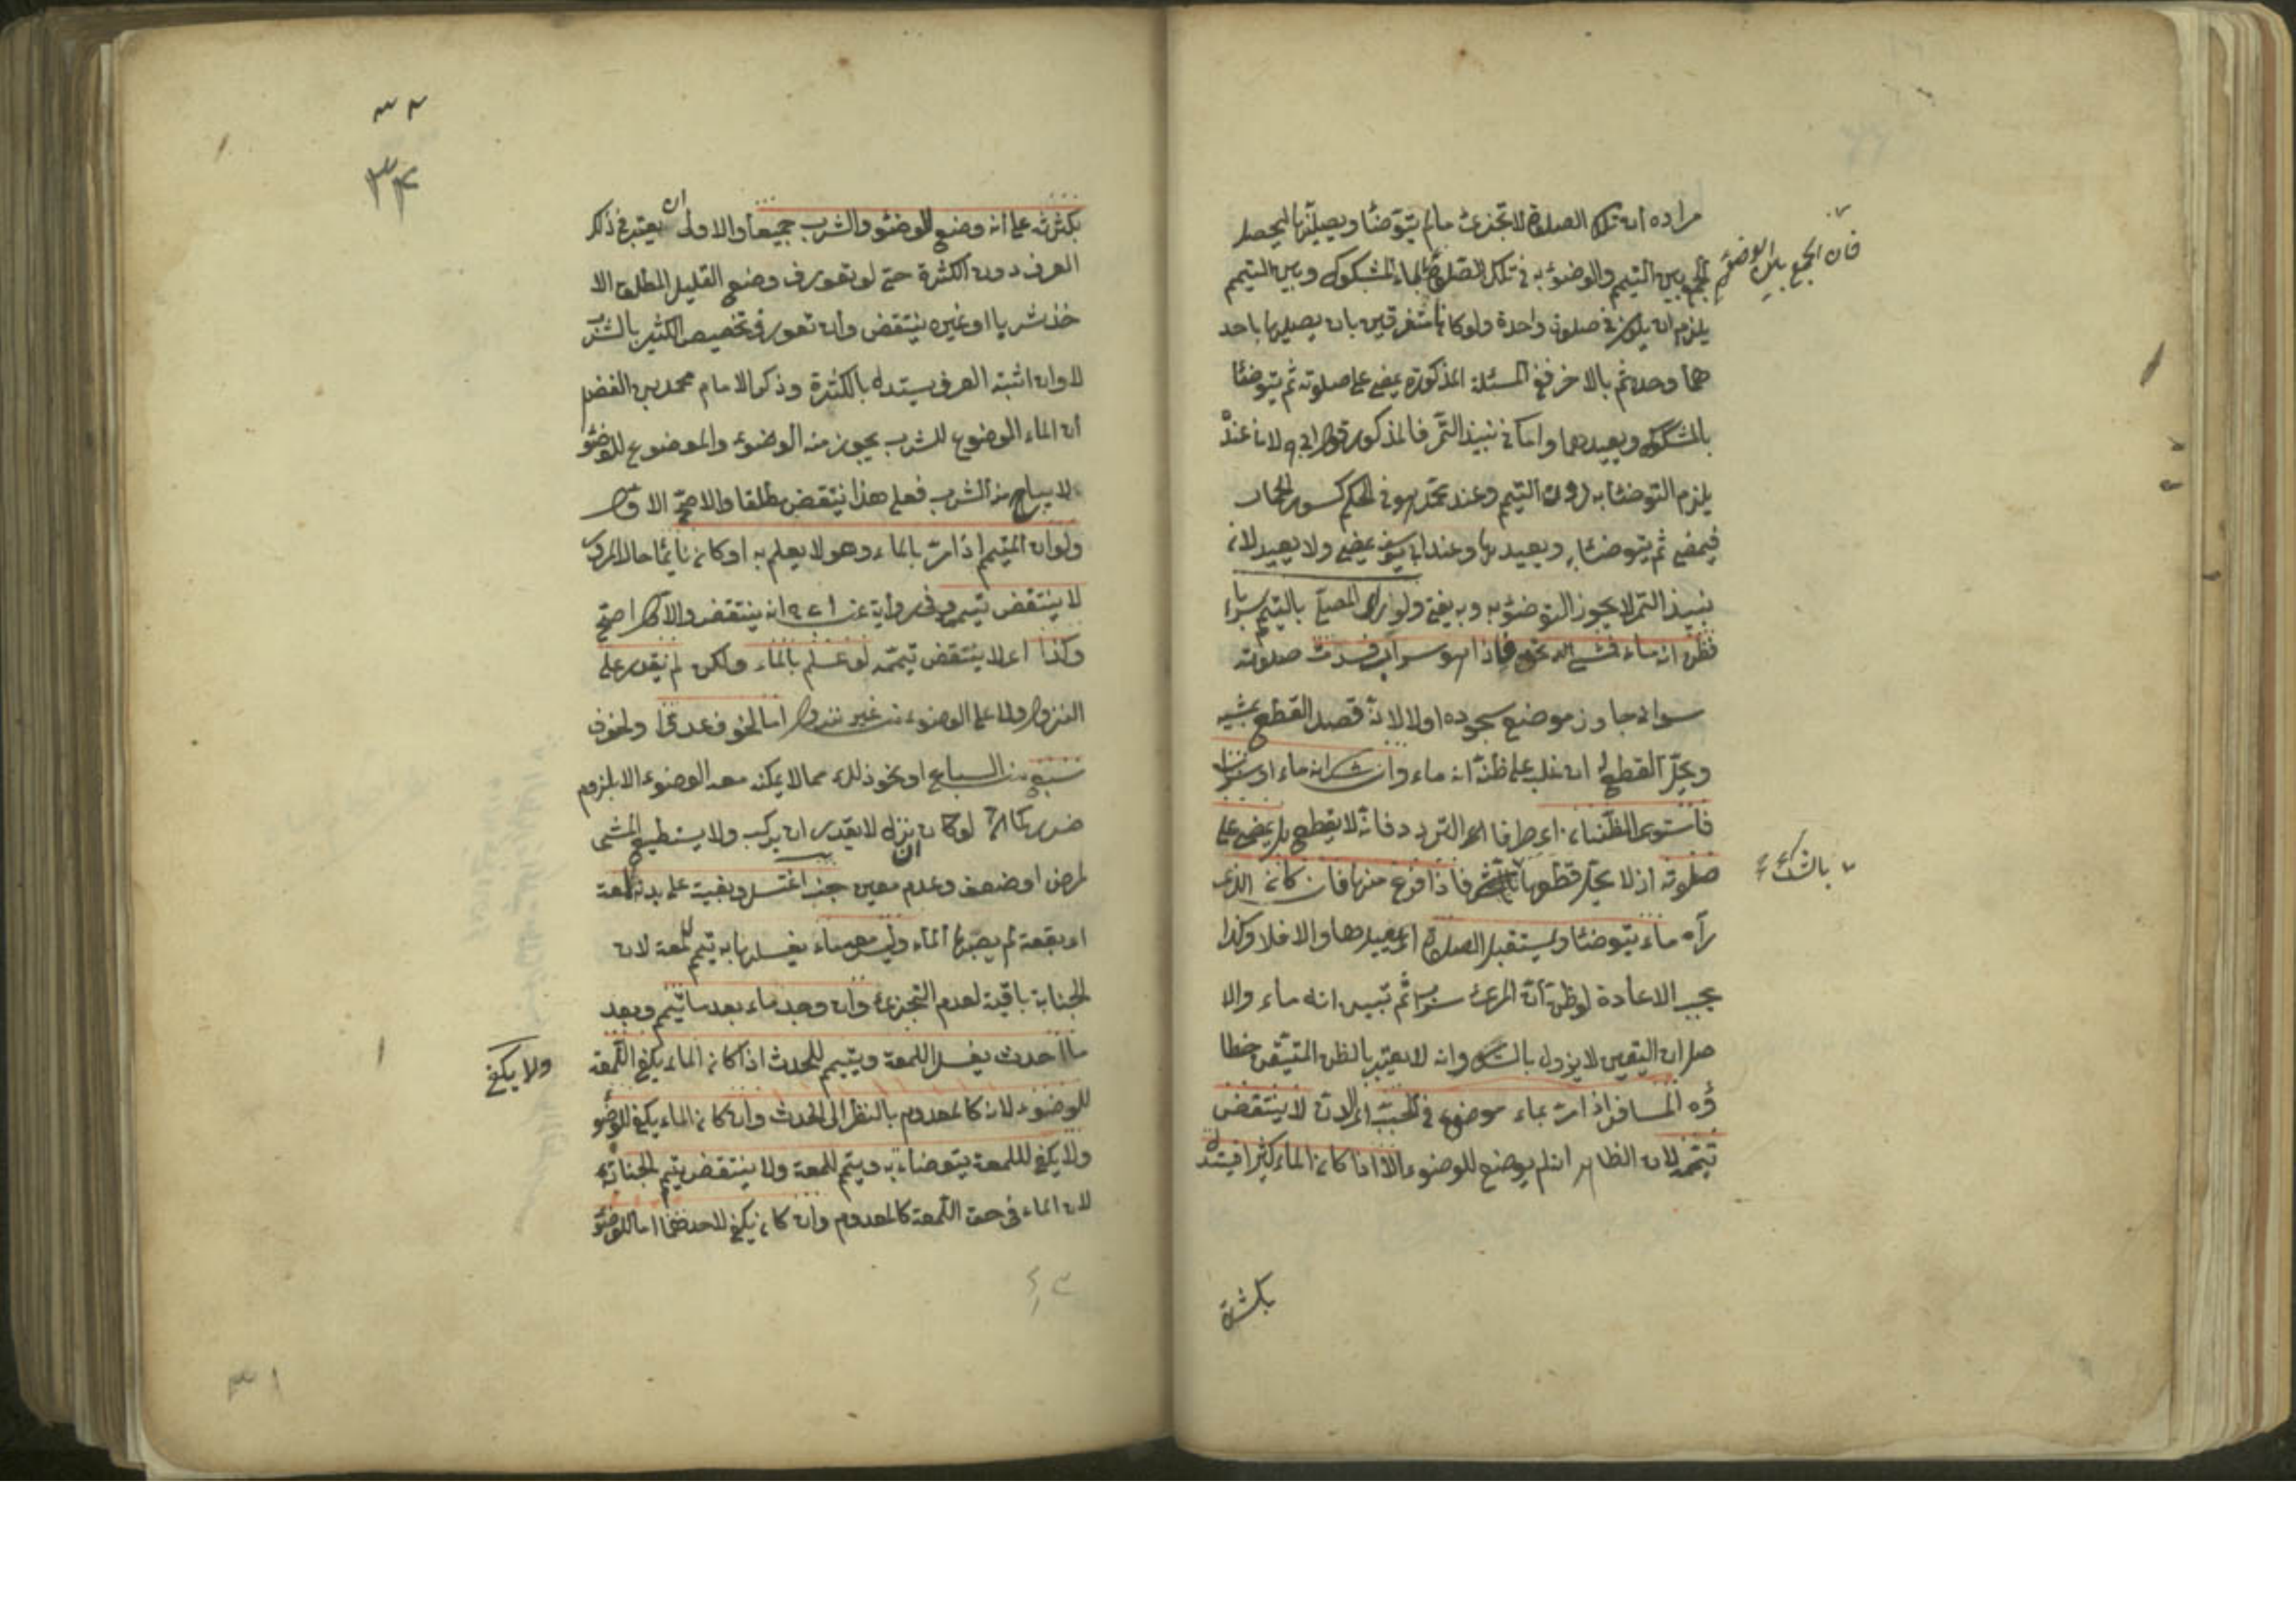 مراده ان تلك الصلوة لا تجزئ ما لم يتوضأ ويصليها ليحصل
الجمع بين التيمم والوضوء به في تلك الصلوة بالماء المشكوك وبين التيمم
فان الجمع بين الوضوء
يلزم ان يكون في صلوة واحدة ولو كانا متفرقين بان يصليها باحد
هما وحده ثم بالاخر ففي المسئلة المذكورة يمضي على صلوته ثم يتوضأ
بالمشكوك ويعيدها واما في نبيذ التمر فالمذكور قول ابي لان عنده
يلزم التوضأ به دون التيمم وعند محمد هو في الحكم كسور الحمار
فيمضي ثم يتوضأ به ويعيدها وعند ابي يوسف يمضي ولا يعيد لان
نبيذ التمر لا يجوز التوضؤ به وبه يفتى ولو رأى المصلي بالتيمم سرابا
فظن انه ماء فمشى الى نحوه فاذا هو سراب فسدت صلوته
سواء جاوز موضع سجوده اولا لانه قصد القطع بمشيه
ويحل القطع له ان غلب على ظنه انه ماء وان شك انه ماء او سراب
فاستوى الظنان اي طرفا التردد فانه لا يقطع بل يمضي على
صلوته اذ لا يحل قطعها فاذا فرغ منها فان كان الذي
بالشك
رآه ماء يتوضأ ويستقبل الصلوة اي يعيدها والا فلا وكذا
يجب الاعادة لو ظن ان المرئي سراب ثم تبين انه ماء والا
صل ان اليقين لا يزول بالشك وانه لا يعتبر بالظن المتيقن خطا
ؤه المسافر اذا مر بماء موضوع في الحب لا ينتقض
تيممه لان الظاهر انه لم يوضع للوضوء الا اذا كان الماء كثيرا فيستدل
بكثرته
٣٤
بكثرته على انه وضع للوضوء والشرب جميعا والاولى ان يعتبر في ذلك
العرف دون الكثرة حتى لو تعورف وضع القليل المطلق الا
خذ شربا او غيره ينتقض وان تعورف تخصيص الكثير بالشرب
لا وان اشتبه العرف يستدل بالكثرة وذكر الامام محمد بن الفضل
ان الماء الموضوع للشرب يجوز منه الوضوء والموضوع للوضوء
لا يباح منه الشرب فعلى هذا ينتقض مطلقا والاصح الاول
ولو ان المتيمم اذا مر بالماء وهو لا يعلم به او كان نائما حال المرور
لا ينتقض تيممه وفي رواية عن انه ينتقض والاول اصح
وكذا اي لا ينتقض تيممه لو علم بالماء ولكن لم يقدر على
النزول ولا على الوضوء من غير نزول اما لخوف عدو او لخوف
سبع من السباع او نحو ذلك مما لا يمكنه معه الوضوء الا بلزوم
ضرر كما لو كان ان نزل لا يقدر ان يركب ولا يستطيع المشي
لمرض او ضعف وعدم معين جنب اغتسل وبقيت على بدنه لمعة
اي بقعة لم يصبها الماء وليس معه ماء يغسلها به تيمم للمعة لان
الجنابة باقية لعدم التجزئ وان وجد ماء بعد ما تيمم وبعد
ما احدث يغسل اللمعة ويتيمم للحدث اذا كان الماء يكفي اللمعة
ولا يكفي
للوضوء لانه كالمعدوم بالنظر الى الحدث وان كان الماء يكفي للوضوء
ولا يكفي لللمعة يتوضأ به ويتيمم للمعة ولا ينتقض تيمم الجنابة
لان الماء في حق اللمعة كالمعدوم وان كان يكفي لاحدهما اما للوضوء
٣١